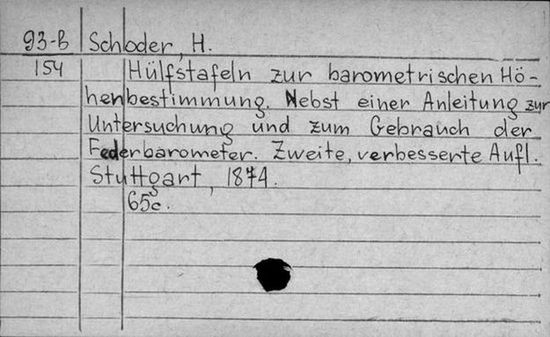 93-B Schoder, H.
154 Hülfstafeln zur barometrischen Hö-
henbestimmung. Nebst einer Anleitung zur
Untersuchung und zum Gebrauch der
Federbarometer. Zweite, verbesserte Aufl.
Stuttgart, 1874.
65c.